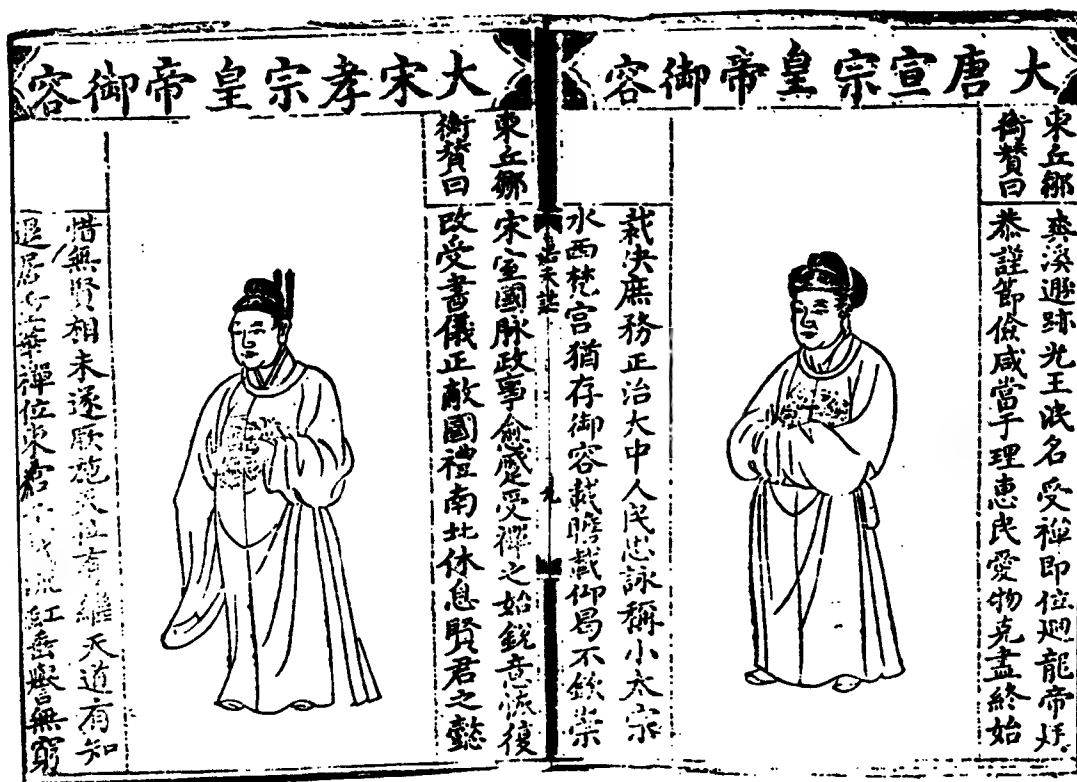 大唐宣宗皇帝御容
東丘鄒
衡贊曰
溪遯跡光王晦名受禪即位廻龍帝廷
恭謹節儉咸當于理惠民愛物克盡終始
裁决庶務正治大中人民思詠稱小太宗
水西梵宮猶存御容載瞻載仰曷不欽崇
九
大宋孝宗皇帝御容
東丘鄒
衡贊曰
宋室國脉政事愈受禪之始銳意恢復
改受書儀正敵國禮南北休息賢君之懿
惜無賢相未遂厥施位有繼天道有知
退居重華禪位東君流虹垂譽無窮